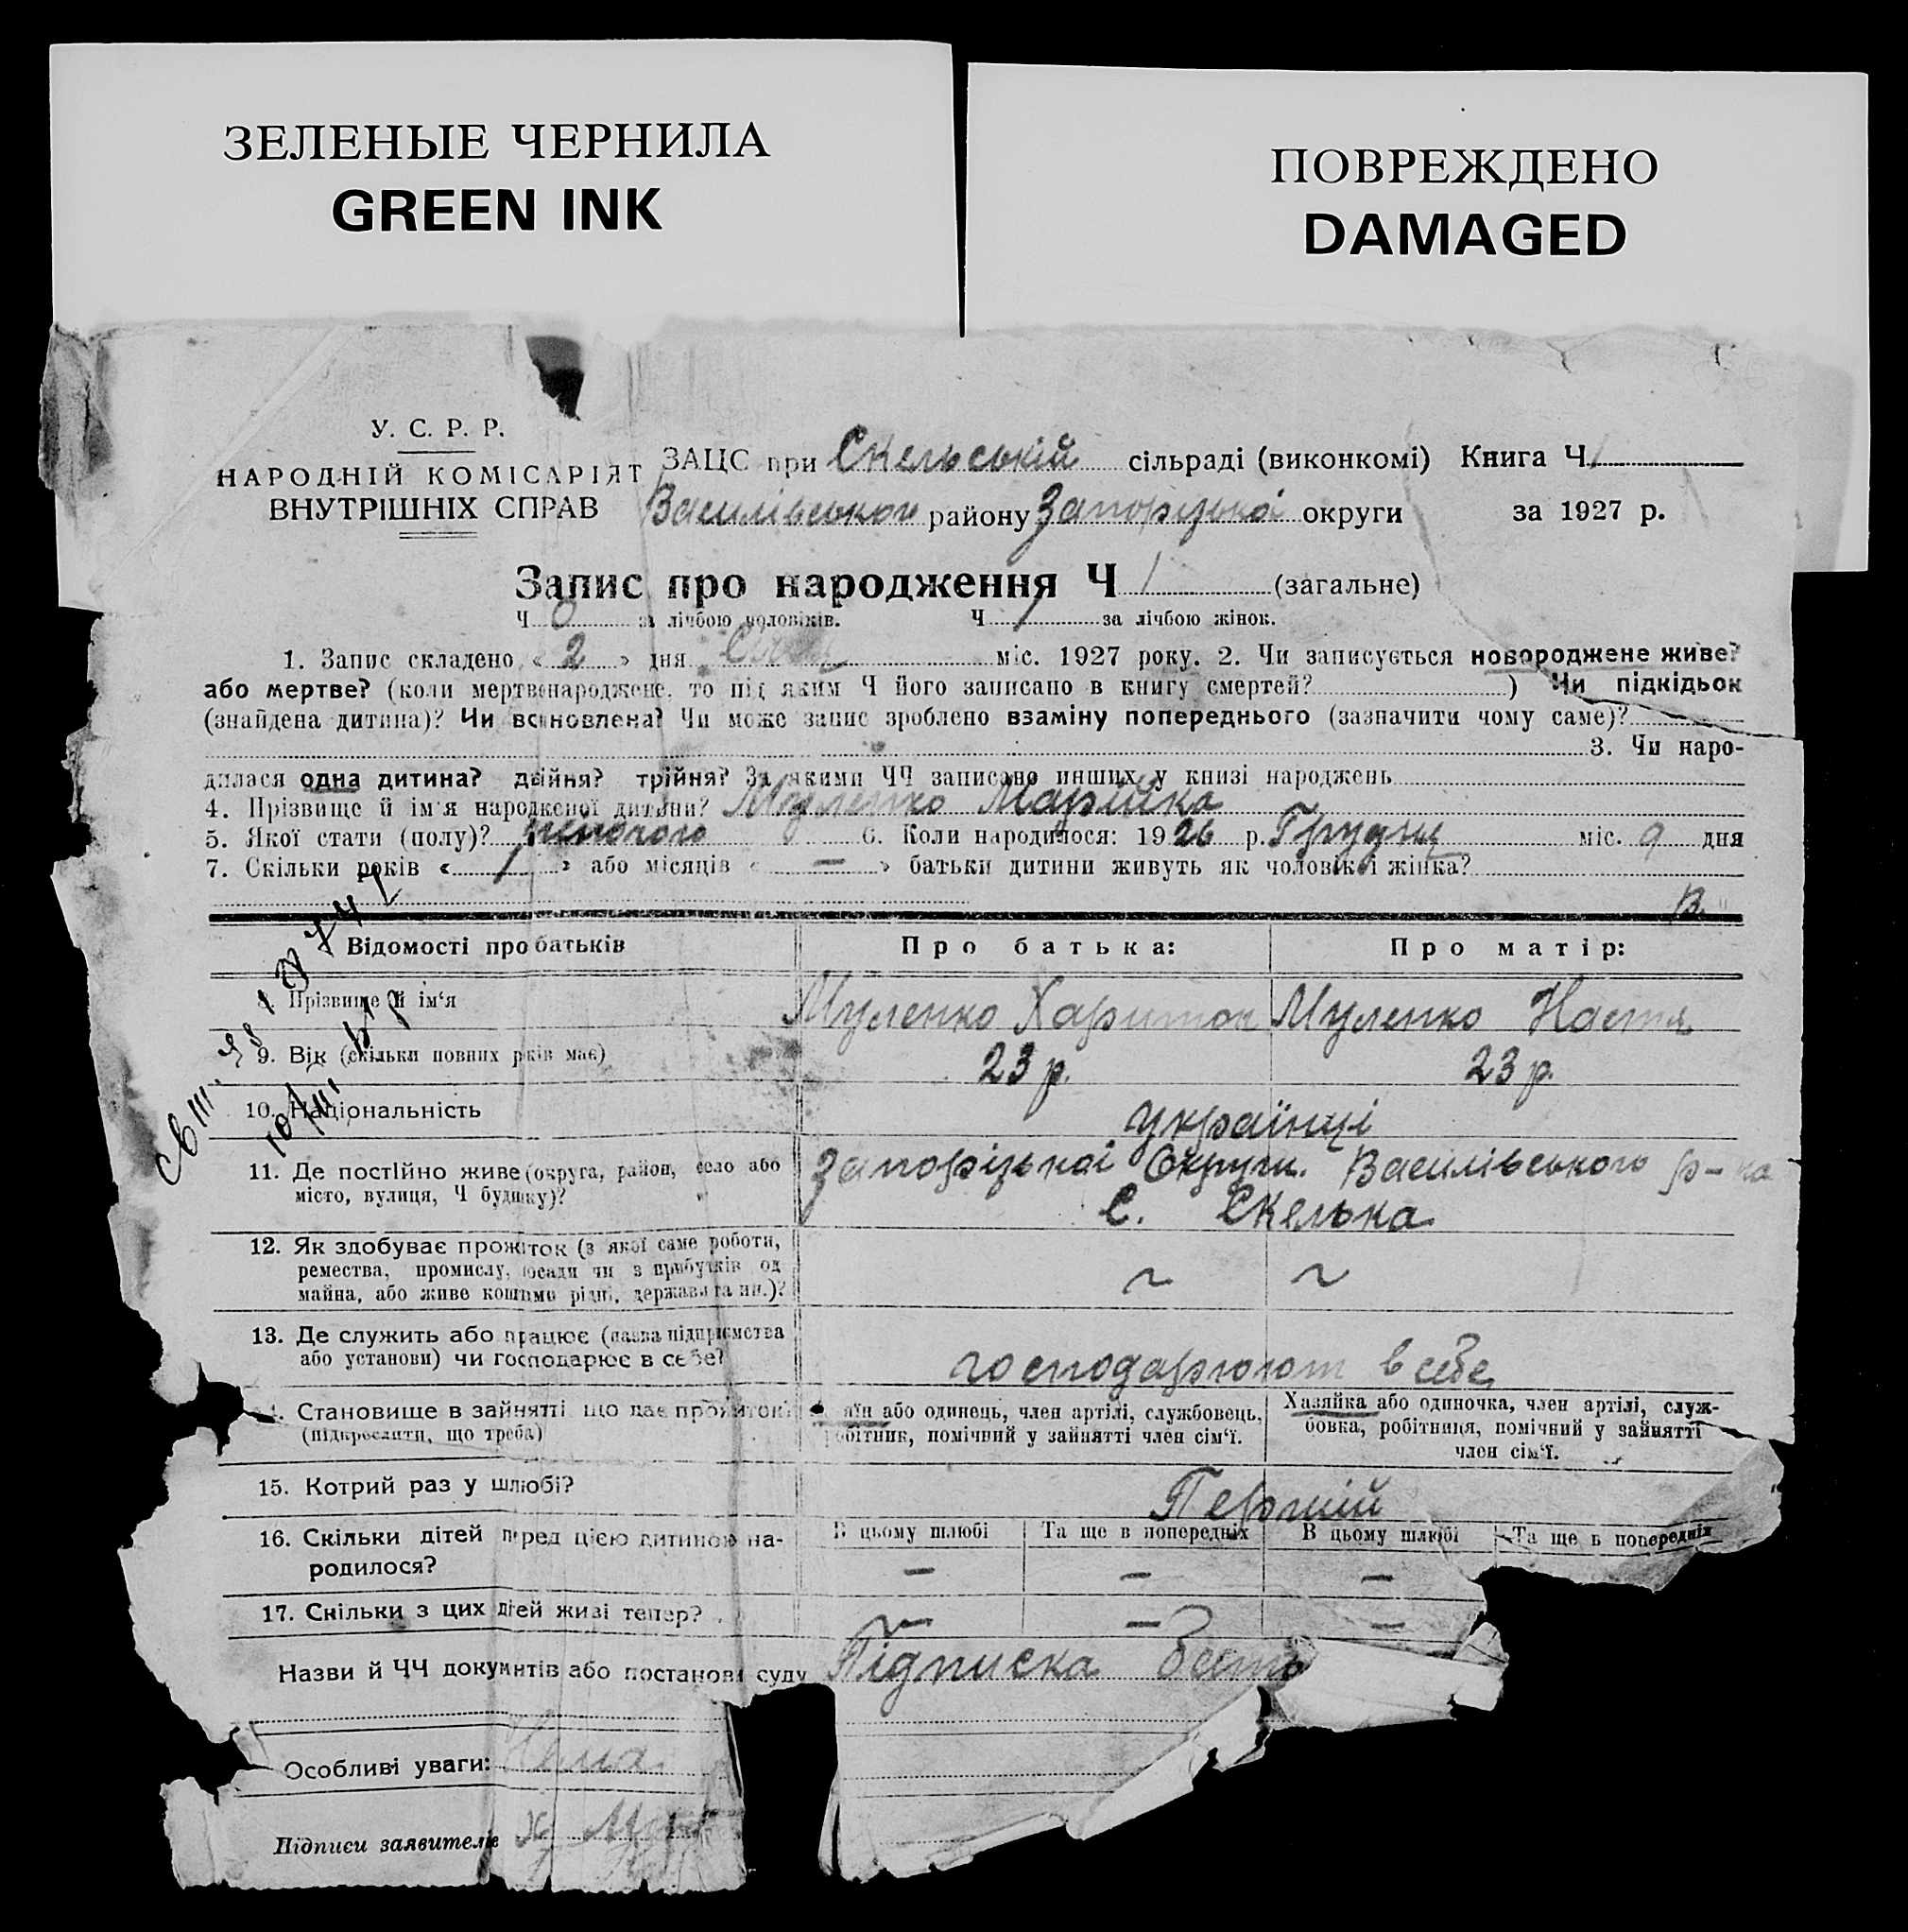 ЗЕЛЕНЫЕ ЧЕРНИЛА
GREEN INK
ПОВРЕЖДЕНО
DAMAGED
У. С. Р. Р.
НАРОДНІЙ КОМІСАРІЯТ
ВНУТРІШНІХ СПРАВ
ЗАЦС при Скельській сільраді (виконкомі) Книга Ч. 1
Василівського району Запорізької округи за 1927 р.
Запис про народження Ч 1 (загальне)
Ч 0 за лічбою чоловіків. Ч 1 за лічбою жінок.
1. Запис складено « 2 » дня Січня міс. 1927 року. 2. Чи записується новороджене живе?
або мертве? (коли мертвонароджене, то під яким Ч його записано в книгу смертей? ) Чи підкідьок
(знайдена дитина)? Чи встановлена? Чи може запис зроблено взаміну попереднього (зазначити чому саме)?
3. Чи наро-
дилася одна дитина? двійня? трійня? За якими ЧЧ записано инших у книзі народжень
4. Прізвище й ім'я народженої дитини? Муленко Марійка
5. Якої стати (полу)? жіночого 6. Коли народилося: 1926 р. Грудня міс. 9 дня
7. Скільки років « 1 » або місяців « — » батьки дитини живуть як чоловік і жінка?
Відомості про батьків Про батька: Про матір:
8. Прізвище й ім'я Муленко Харитон Муленко Настя
9. Вік (скільки повних років має) 23 р. 23 р.
10. Національність українці
11. Де постійно живе (округа, район, село або Запорізької Округи. Василівського р-на
місто, вулиця, Ч будинку)? С. Скелька
12. Як здобуває прожиток (з якої саме роботи,
ремества, промислу, посади чи з прибутків од
майна, або живе коштами рідні, держави та ин.)? ~ ~
13. Де служить або працює (назва підприємства
або установи) чи господарює в себе? господарюют в себе
14. Становище в зайнятті що дає прожиток? або одинець, член артілі, службовець, Хазяйка або одиночка, член артілі, служ-
(підкреслити, що треба) робітник, помічний у зайнятті член сім'ї. бовка, робітниця, помічний у зайнятті
член сім'ї.
15. Котрий раз у шлюбі? Первий
16. Скільки дітей перед цією дитиною на- В цьому шлюбі Та ще в попередніх В цьому шлюбі Та ще в попередніх
родилося? — — —
17. Скільки з цих дітей живі тепер? — — —
Назви й ЧЧ документів або постанови суду Підписка
Особливі уваги: Нема
Підписи заявителів Х